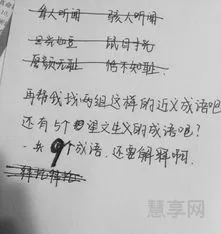 耸人听闻 骇人听闻
目光如豆 鼠目寸光
厚颜无耻 恬不知耻
再帮我找两组这样的近义成语吧
还有5个望文生义的成语吧?
一共9个成语,还要解释啊.
慧享网